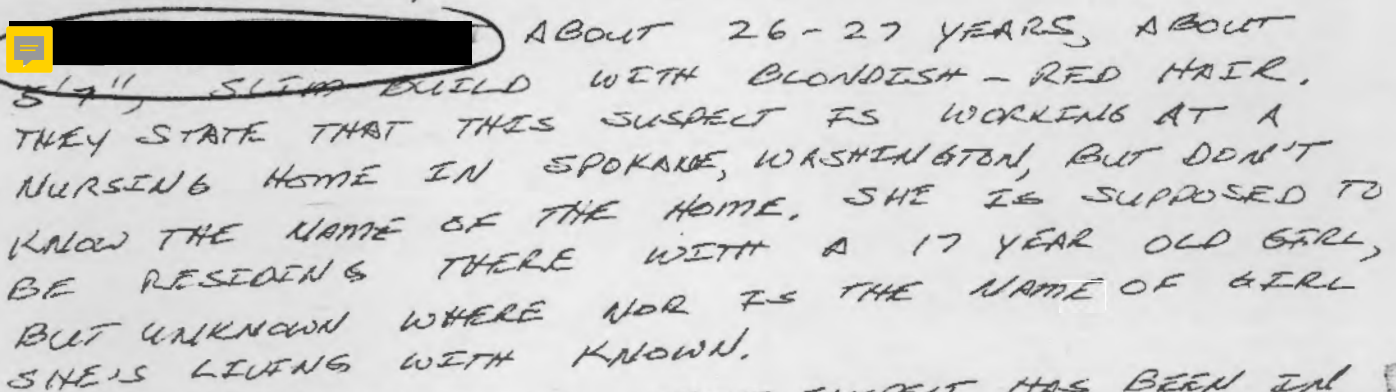 ABOUT 26-27 YEARS, ABOUT
5'7", SLIM BUILD WITH BLONDISH - RED HAIR.
THEY STATE THAT THIS SUSPECT IS WORKING AT A
NURSING HOME IN SPOKANE, WASHINGTON, BUT DON'T
KNOW THE NAME OF THE HOME. SHE IS SUPPOSED TO
BE RESIDING THERE WITH A 17 YEAR OLD GIRL,
BUT UNKNOWN WHERE NOR IS THE NAME OF GIRL
SHE'S LIVING WITH KNOWN.
SUSPECT HAS BEEN IN